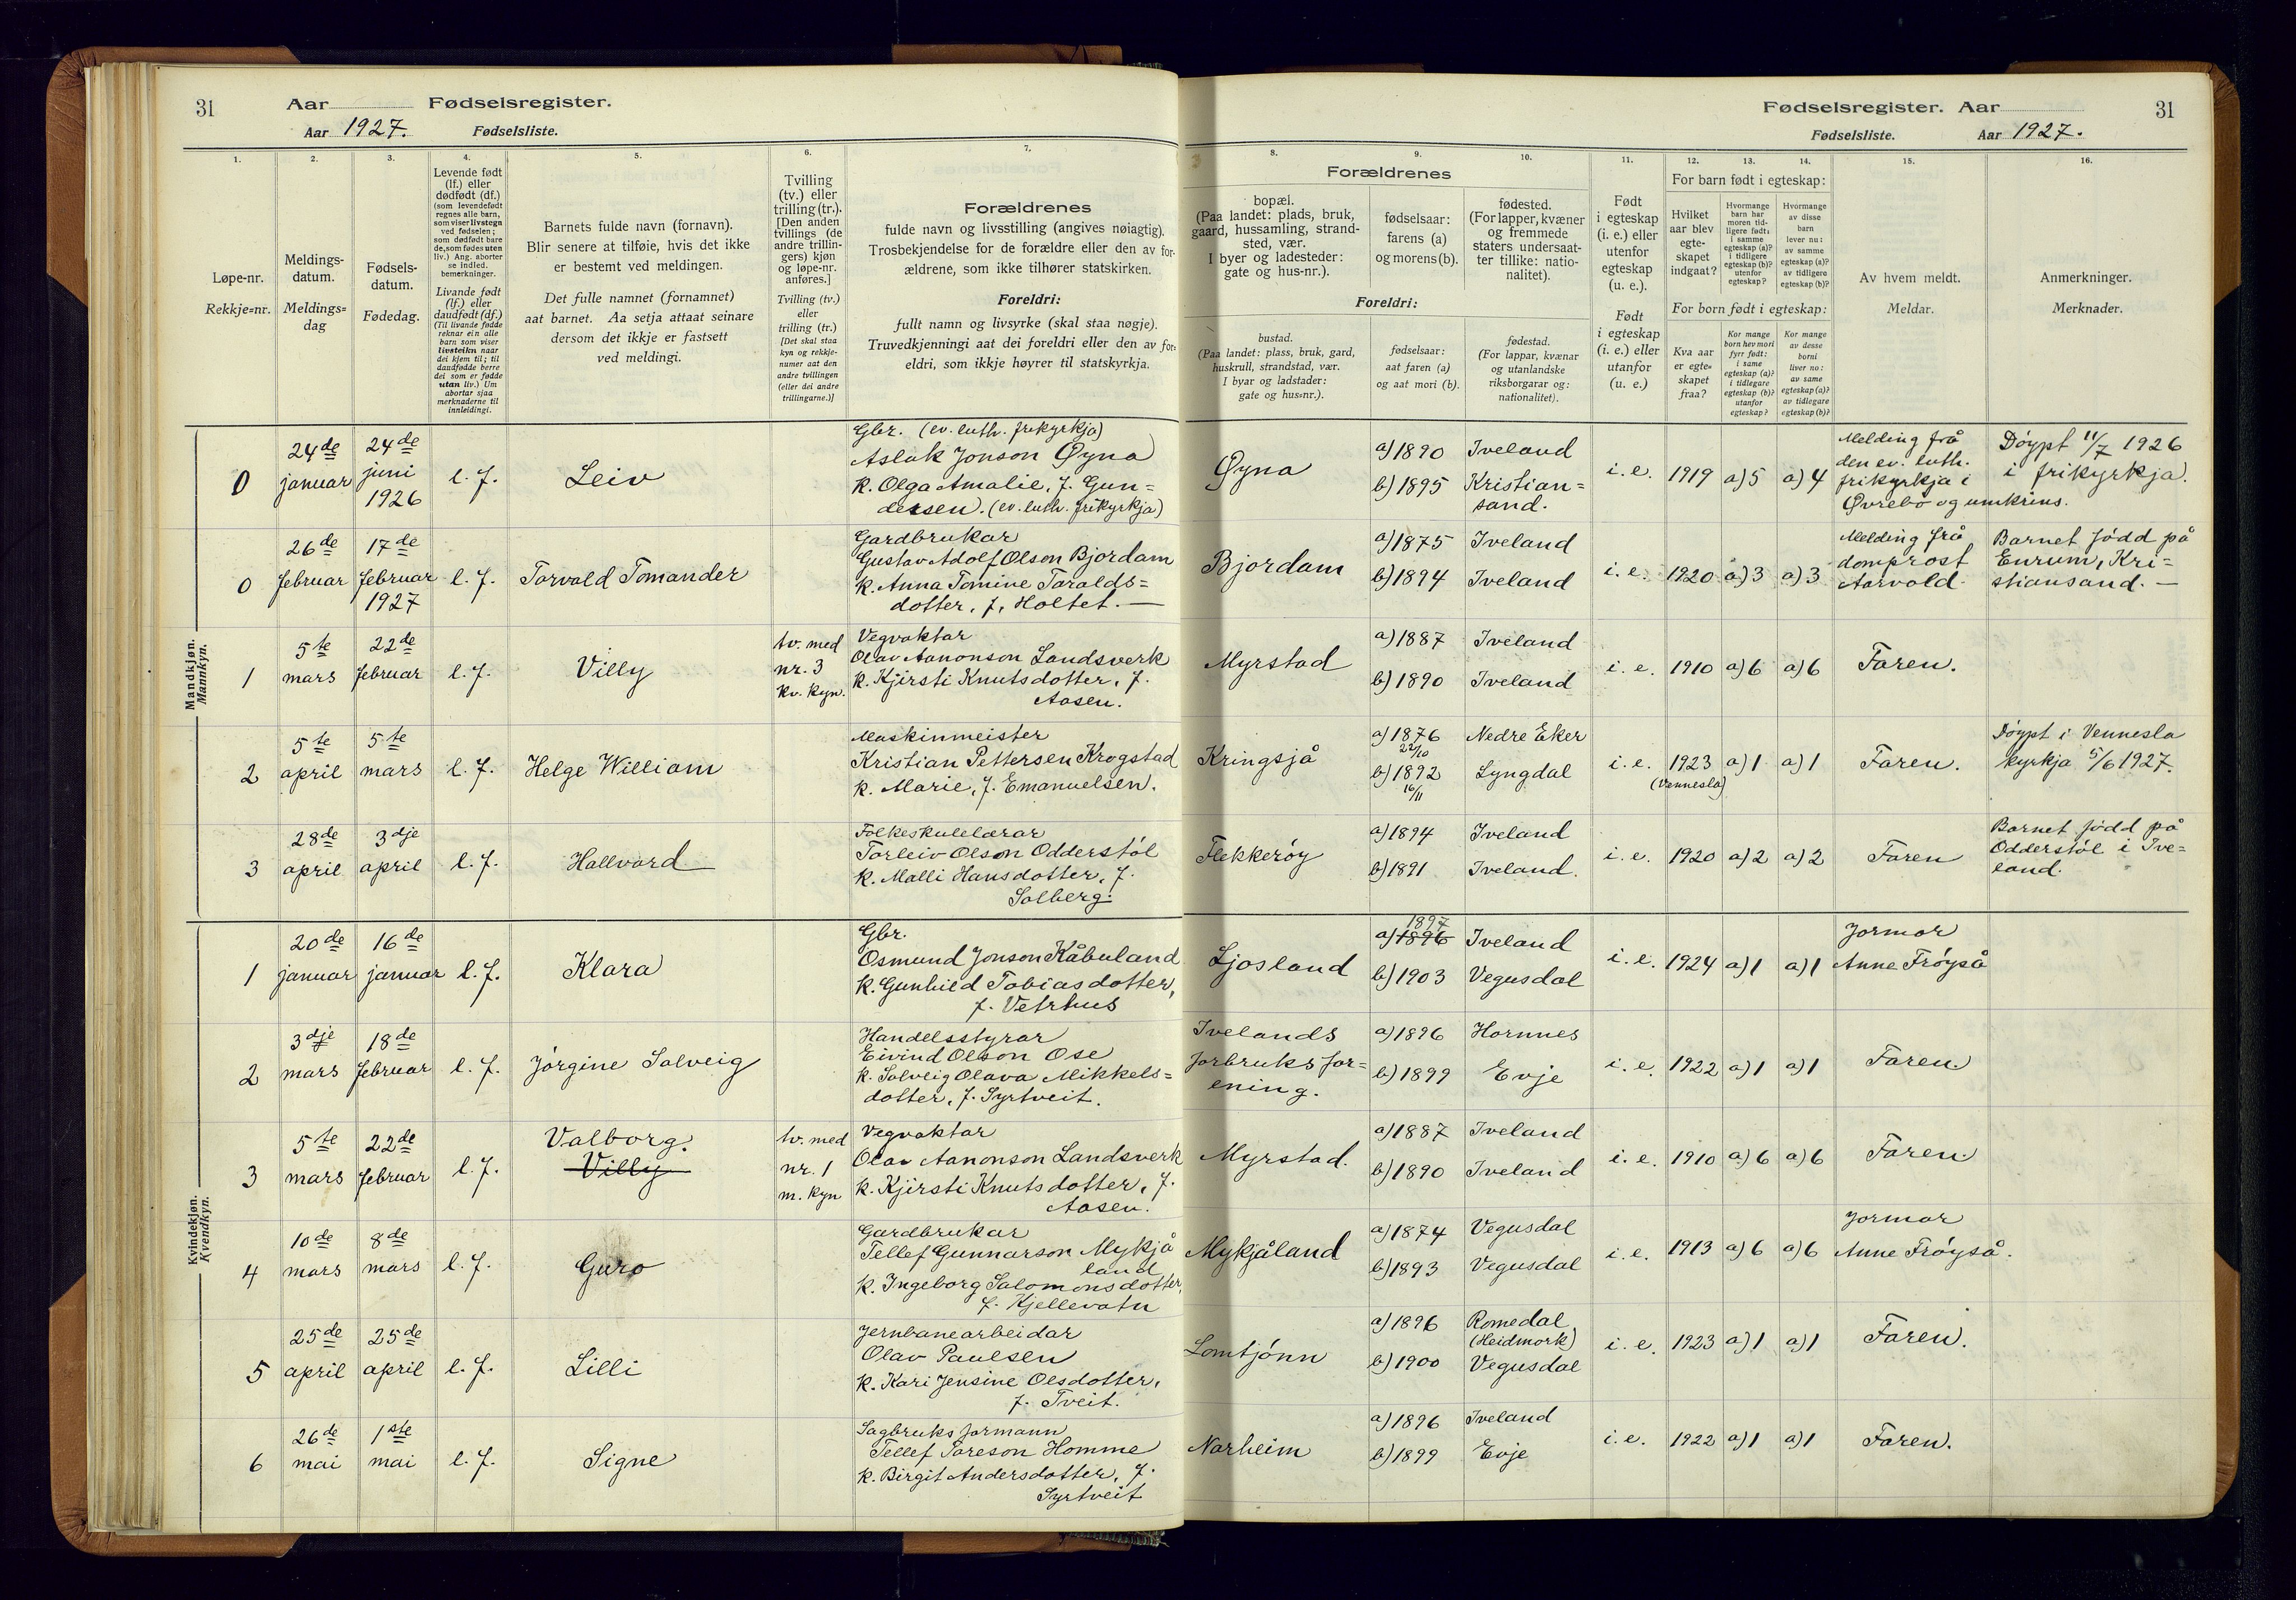 31 Aar Fødselsregister.
Aar 1927. Fødselsliste.
Fødselsregister. Aar 31
Fødselsliste. Aar 1927.
1.
Løpe-nr.
Rekkje=nr.
2.
Meldings-
datum.
Meldings=
dag
3.
Fødsels-
datum.
Fødedag.
4.
Levende født
(lf.) eller
dødfødt (df.)
(som levendefødt
regnes alle barn,
som viser livstegn
ved fødselen;
som dødfødt bare
de, som fødes uten
liv.) Ang. aborter
se indled.
bemerkninger.
Livande født
(lf.) eller
daudfødt (df.)
(Til livande fødde
reknar ein alle
barn som viser
livsteikn naar
dei kjem til; til
daudfødde berre
dei som er fødde
utan liv.) Um
abortar sjaa
merknaderne til
innleidingi.
5.
Barnets fulde navn (fornavn).
Blir senere at tilføie, hvis det ikke
er bestemt ved meldingen.
Det fulle namnet (fornamnet)
aat barnet. Aa setja attaat seinare
dersom det ikkje er fastsett
ved meldingi.
6.
Tvilling
(tv.) eller
trilling (tr.).
[Den anden
tvillings (de
andre trillin-
gers) kjøn
og løpe-nr.
anføres.]
Tvilling (tv.)
eller
trilling (tr.)
[Det skal staa
kyn og rekkje-
numer aat den
andre tvillingen
(eller dei andre
trillingarne.)]
7.
Forældrenes
fulde navn og livsstilling (angives nøiagtig).
Trosbekjendelse for de forældre eller den av for-
ældrene, som ikke tilhører statskirken.
Foreldri:
fullt namn og livsyrke (skal staa nøgje).
Truvedkjenningi aat dei foreldri eller den av for=
eldri, som ikkje høyrer til statskyrkja.
Forældrenes
8.
bopæl.
(Paa landet: plads, bruk,
gaard, hussamling, strand-
sted, vær.
I byer og ladesteder:
gate og hus-nr.).
Foreldri:
bustad.
(Paa landet: plass, bruk, gard,
huskrull, strandstad, vær.
I byar og ladstader:
gate og hus=nr.).
9.
fødselsaar:
farens (a)
og morens (b).
fødselsaar:
aat faren (a)
og aat mori (b).
10.
fødested.
(For lapper, kvæner
og fremmede
staters undersaat-
ter tillike: natio-
nalitet).
fødestad.
(For lappar, kvænar
og utanlandske
riksborgarar og:
nationalitet).
11.
Født
i egteskap
(i. e.) eller
utenfor
egteskap
(u. e.).
Født
i egteskap
(i. e.) eller
utanfor
(u. e.)
12. 13. 14.
For barn født i egteskap:
Hvilket
aar blev
egte-
skapet
indgaat?
Hvormange
barn har
moren tid-
ligere født:
i samme
egteskap (a)?
i tidligere
egteskap (b)?
utenfor
egteskap?
Hvormange
av disse
barn
lever nu:
av samme
egteskap (a)?
av tidligere
egteskap (b)?
For born født i egteskap:
Kva aar
er egte=
skapet
fraa?
Kor mange
born hev mori
fyrr født:
i same
egteskap (a)?
i tidlegare
egteskap (b)?
utanfor
egteskap?
Kor mange
av desse
borni
liver no:
av same
egteskap (a)?
av tidlegare
egteskap (b)?
15.
Av hvem meldt.
Meldar.
16.
Anmerkninger.
Merknader.
Mandkjøn.
Mannkyn.
0 24de januar 24de juni 1926 l. f. Leiv
Gbr. (ev. luth. frikyrkja)
Aslak Jonson Øyna
k. Olga Amalie, f. Gun=
dersen. (ev. luth. frikyrkja)
Øyna a) 1890 Iveland
b) 1895 Kristian=
sand.
i. e. 1919 a) 5 a) 4
Melding frå
den ev. luth.
frikyrkja i
Øvrebø og umkrins.
Døypt 11/7 1926
i frikyrkja.
0 26de februar 17de februar 1927 l. f. Torvald Tomander
Gardbrukar
Gustav Adolf Olson Bjordam
k. Anna Tomine Taralds=
dotter, f. Holtet. —
Bjordam a) 1875 Iveland
b) 1894 Iveland
i. e. 1920 a) 3 a) 3
Melding frå
domprost
Aarvold.
Barnet fødd på
Eurum, Kri=
stiansand. —
1 5te mars 22de februar l. f. Villy
tv. med
nr. 3
kv. kyn.
Vegvaktar
Olav Aanonson Landsverk
k. Kjirsti Knutsdotter, f.
Aasen.
Myrstad a) 1887 Iveland
b) 1890 Iveland
i. e. 1910 a) 6 a) 6 Faren.
2 5te april 5te mars l. f. Helge William
Maskinmeister
Kristian Pettersen Krogstad
k. Marie, f. Emanuelsen.
Kringsjå a) 1876 Nedre Eker
22/10
b) 1892 Lyngdal
16/11
i. e. 1923 (Vennesla) a) 1 a) 1 Faren.
Døypt i Vennesla
kyrkja 5/6 1927.
3 28de april 3dje april l. f. Hallvard
Folkeskulelærar
Torleiv Olson Odderstøl
k. Malli Hansdotter, f.
Solberg.
Flekkerøy a) 1894 Iveland
b) 1891 Iveland.
i. e. 1920 a) 2 a) 2 Faren
Barnet fødd på
Odderstøl i Ive=
land.
Kvindekjøn.
Kvendkyn.
1 20de januar 16de januar l. f. Klara
Gbr.
Osmund Jonson Kåbuland
k. Gunhild Tobiasdotter,
f. Vetrhus
Ljosland 1897
a) 1896 Iveland
b) 1903 Vegusdal
i. e. 1924 a) 1 a) 1
Jormor
Anne Frøyså
2 3dje mars 18de februar l. f. Jørgine Solveig
Handelsstyrar
Eivind Olson Ose
k. Solveig Olava Mikkels=
dotter, f. Syrtveit.
Ivelands
forbruksfor=
ening.
a) 1896 Hornnes
b) 1899 Evje
i. e. 1922 a) 1 a) 1 Faren.
3 5te mars 22de februar l. f. Valborg.
Villy
tv. med
nr. 1
m. kyn
Vegvaktar
Olav Aanonson Landsverk
k. Kjirsti Knutsdotter, f.
Aasen.
Myrstad. a) 1887 Iveland
b) 1890 Iveland
i. e. 1910 a) 6 a) 6 Faren.
4 10de mars 8de mars l. f. Guro
Gardbrukar
Tellef Gunnarson Mykjå
land
k. Ingeborg Salomonsdotter,
f. Kjellevatn
Mykjåland a) 1874 Vegusdal
b) 1893 Vegusdal
i. e. 1913 a) 6 a) 6
Jormor
Anne Frøyså.
5 25de april 25de april l. f. Lilli
Jernbanearbeidar
Olav Paulsen
k. Kari Jensine Olsdotter,
f. Tveit.
Lomtjønn a) 1896 Romedal
(Heidmork)
b) 1900 Vegusdal
i. e. 1923 a) 1 a) 1 Faren.
6 26de mai 1ste mai l. f. Signe
Sagbruksformann
Tellef Tareson Homme
k. Birgit Andersdotter, f.
Syrtveit
Norheim a) 1896 Iveland
b) 1899 Evje
i. e. 1922 a) 1 a) 1 Faren.